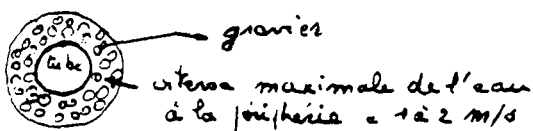 gravier
tube
vitesse maximale de l'eau
à la périphérie = 1 à 2 m/s